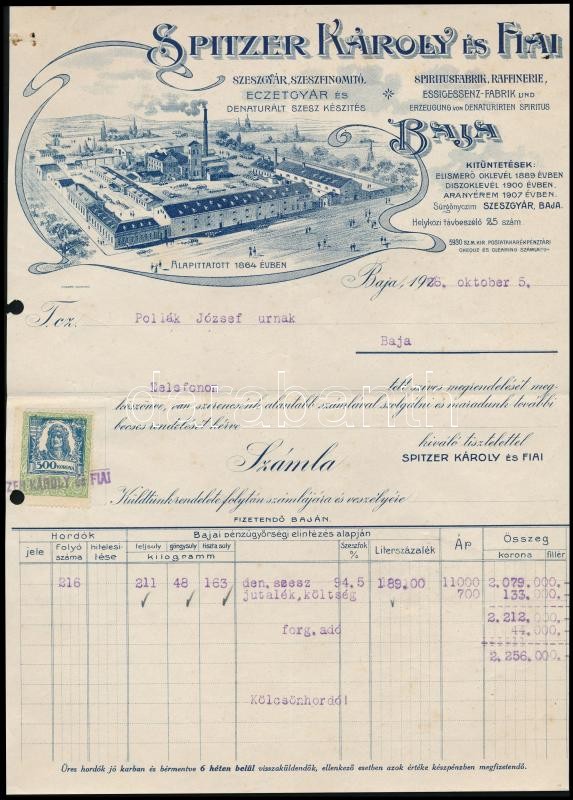 SPITZER KÁROLY és FIAI
SZESZGYÁR, SZESZFINOMITÓ.
ECZETGYÁR és
DENATURÁLT SZESZ KÉSZITÉS
SPIRITUSFABRIK, RAFFINERIE,
ESSIGESSENZ-FABRIK UND
ERZEUGUNG VON DENATURIRTEN SPIRITUS
BAJA
KITÜNTETÉSEK:
ELISMERŐ OKLEVÉL 1889 ÉVBEN
DISZOKLEVÉL 1900 ÉVBEN.
ARANYÉREM 1907 ÉVBEN.
Sürgönyczim SZESZGYÁR, BAJA.
Helyközi távbeszélő 25. szám.
5930 SZ. M. KIR. POSTATAKARÉKPÉNZTÁRI
CHEQUE ÉS CLEARING SZÁMLA
ALAPITTATOTT 1864 ÉVBEN
Baja, 1926. oktober 5.
T. cz. Pollák József urnak
Baja
Telefonon tett szives megrendelését meg-
köszönve, van szerencsénk alantabb számlával szolgálni és maradunk további
becses rendelését kérve
kiváló tisztelettel
SPITZER KÁROLY és FIAI
500 KORONA
KÁROLY és FIAI
Számla
Küldtünk rendelete folytán számlájára és veszélyére
FIZETENDŐ BAJÁN.
Hordók Bajai pénzügyőrségi elintézés alapján Összeg
jele Folyó száma hitelesitése teljsuly göngysuly tiszta suly kilogramm Szeszfok % Literszázalék Áp korona fillér
216 211 48 163 den. szesz 94.5 189.00 11000 2,079.000.-
jutalék, költség 700 133.000.-
2,212.000.-
forg. adó 44.000.-
2,256.000.-
Kölcsönhordó!
Üres hordók jó karban és bérmentve 6 héten belül visszaküldendők, ellenkező esetben azok értéke készpénzben megfizetendő.
darabanth